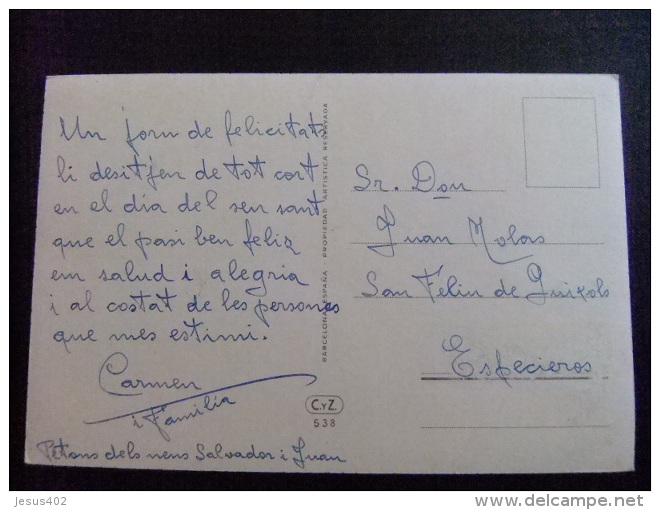 Un jorn de felicitats
li desitjen de tot cort
en el dia del seu sant
que el pasi ben feliz
em salud i alegria
i al costat de les persones
que mes estimi.
Carmen
i Familia
Petons dels nens Salvador i Juan
BARCELONA - ESPAÑA - PROPIEDAD ARTISTICA RESERVADA
C.yZ.
538
Sr. Don
Juan Molas
San Feliu de Guixols
Especieros
Jesus402
delcampe.net